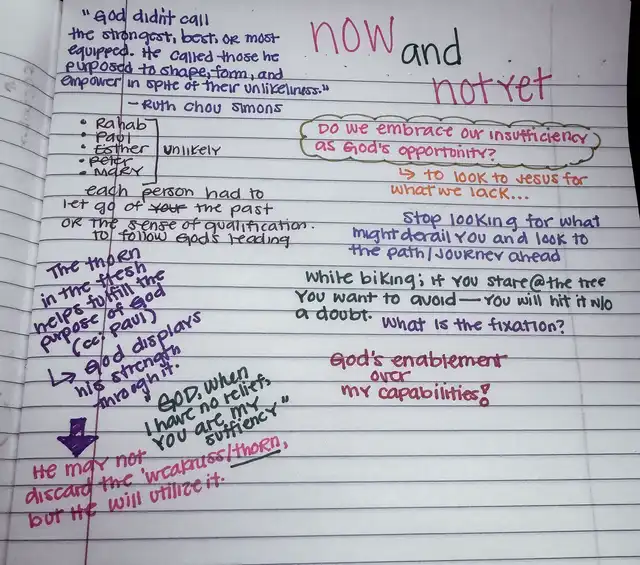 "God didn't call
the strongest, best, or most
equipped. He called those he
purposed to shape, form, and
empower in spite of their unlikeliness."
- Ruth Chou Simons
• Rahab
• Paul
• Esther
• Peter
• Mary
unlikely
each person had to
let go of your the past
or the sense of qualification.
to follow God's leading
The thorn
in the fresh
helps fulfill the
purpose of God
(cc: paul)
↳ God displays
his strength
through it.
"GOD, when
I have no relief,
YOU are my
suffiency"
He may not
discard the 'weakness/thorn,
but He will utilize it.
now and
not yet
Do we embrace our insufficiency
as God's opportunity?
↳ to look to Jesus for
what we lack...
Stop looking for what
might derail you and look to
the path/journey ahead
While biking; if you stare @ the tree
you want to avoid — you will hit it w/o
a doubt.
What is the fixation?
God's enablement
over
my capabilities!